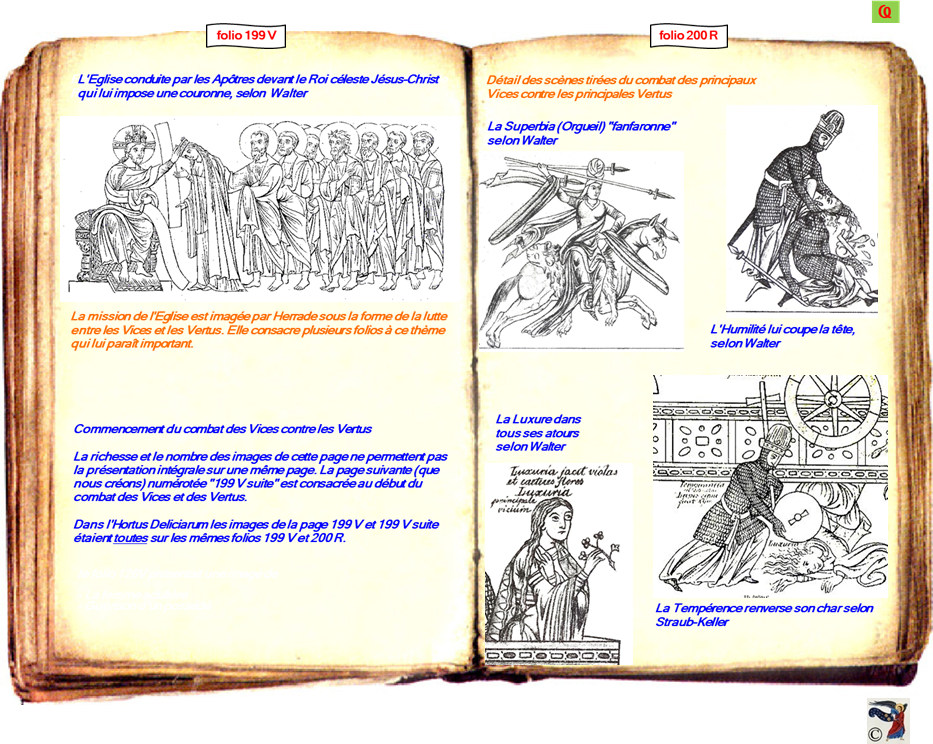 folio 199 V
L'Eglise conduite par les Apôtres devant le Roi céleste Jésus-Christ
qui lui impose une couronne, selon Walter
La mission de l'Eglise est imagée par Herrade sous la forme de la lutte
entre les Vices et les Vertus. Elle consacre plusieurs folios à ce thème
qui lui paraît important.
Commencement du combat des Vices contre les Vertus
La richesse et le nombre des images de cette page ne permettent pas
la présentation intégrale sur une même page. La page suivante (que
nous créons) numérotée "199 V suite" est consacrée au début du
combat des Vices et des Vertus.
Dans l'Hortus Deliciarum les images de la page 199 V et 199 V suite
étaient toutes sur les mêmes folios 199 V et 200 R.
folio 200 R
Détail des scènes tirées du combat des principaux
Vices contre les principales Vertus
La Superbia (Orgueil) "fanfaronne"
selon Walter
L'Humilité lui coupe la tête,
selon Walter
La Luxure dans
tous ses atours
selon Walter
Luxuria jacit violas
et cæteros flores
Luxuria
principale
vicium
luxuria
La Tempérence renverse son char selon
Straub-Keller
©